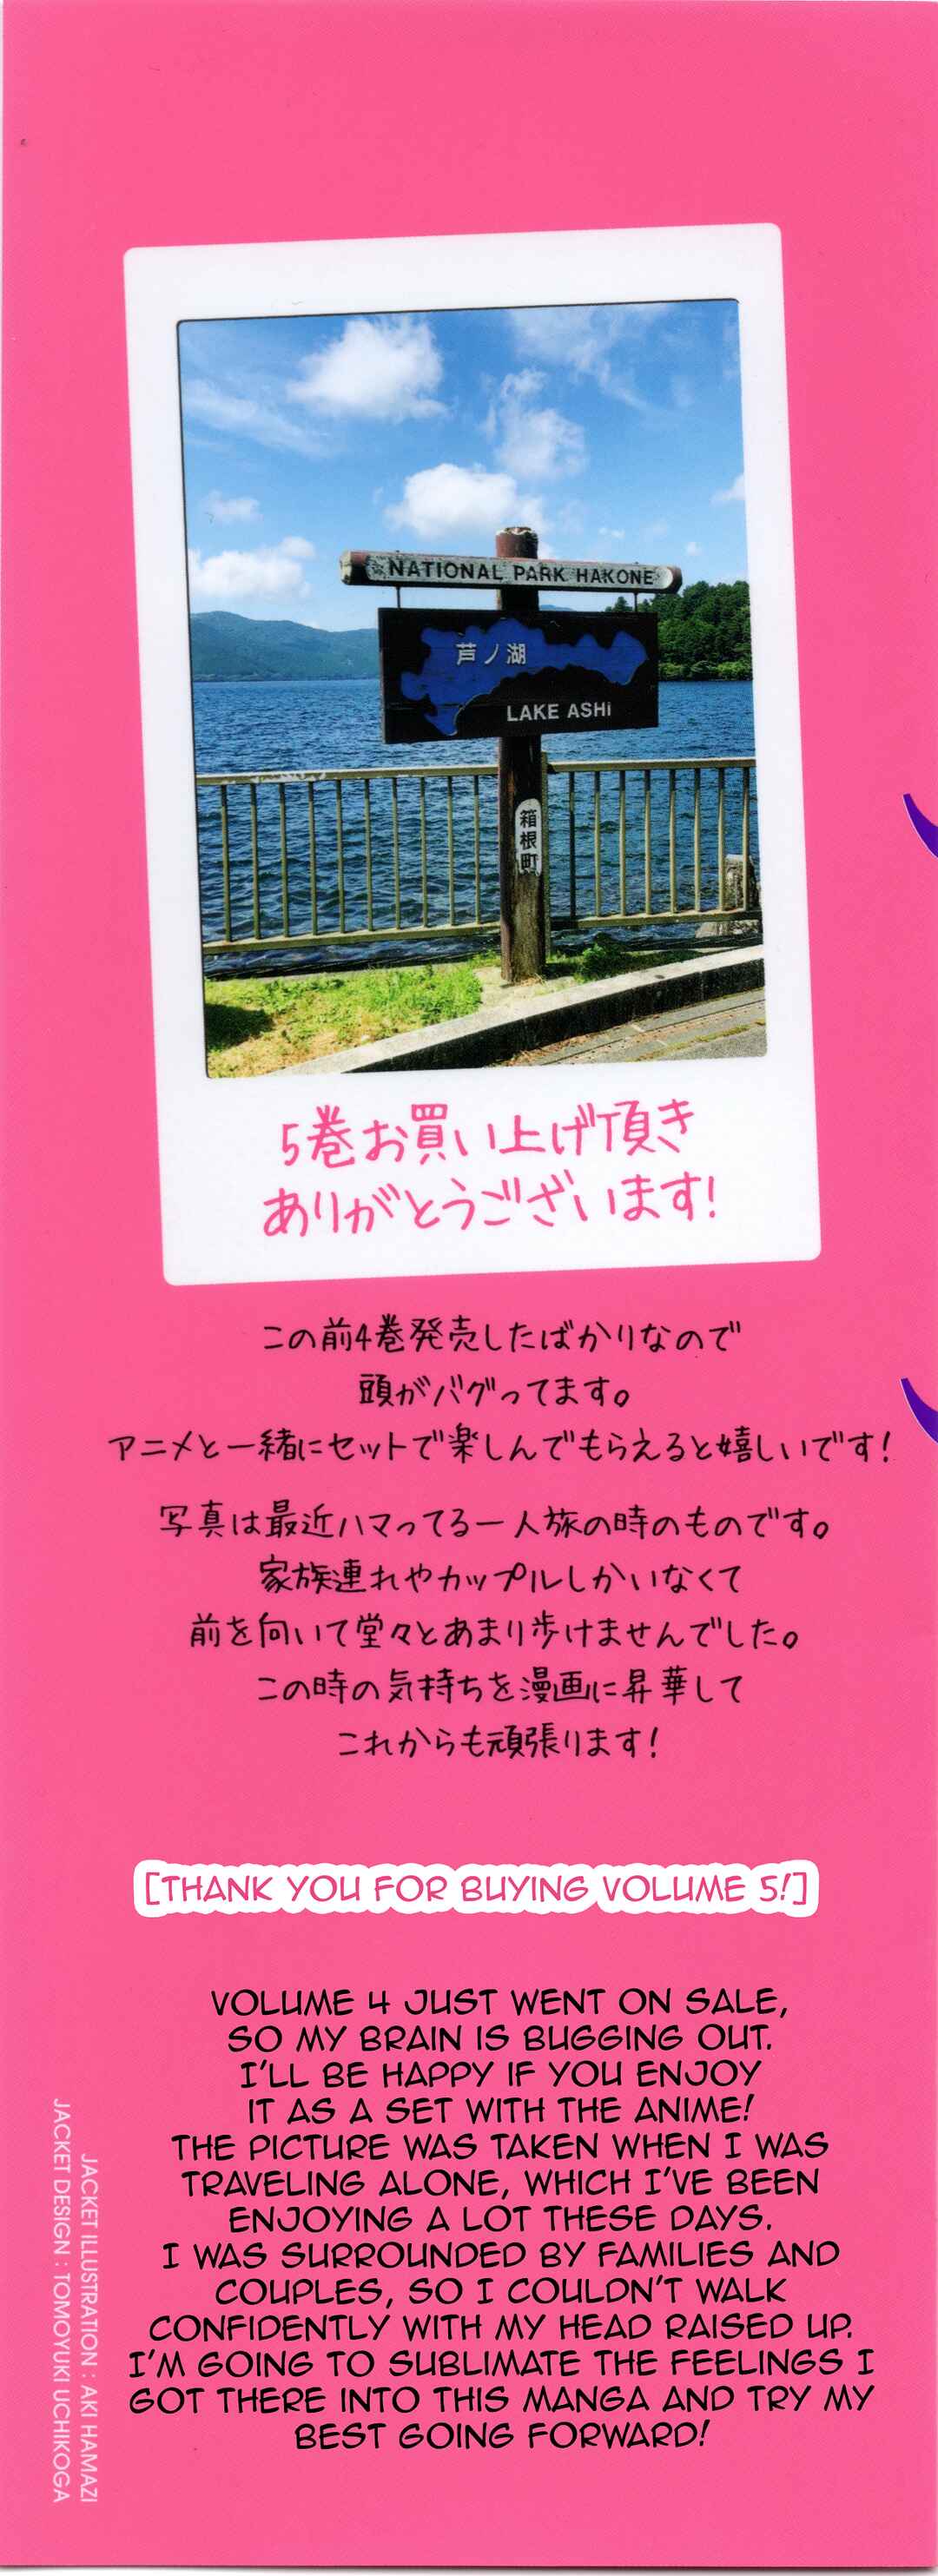 NATIONAL PARK HAKONE
芦ノ湖
LAKE ASHI
箱根町
5巻お買い上げ頂き
ありがとうございます!
この前4巻発売したばかりなので
頭がバグってます。
アニメと一緒にセットで楽しんでもらえると嬉しいです!
写真は最近ハマってる一人旅の時のものです。
家族連れやカップルしかいなくて
前を向いて堂々とあまり歩けませんでした。
この時の気持ちを漫画に昇華して
これからも頑張ります!
[THANK YOU FOR BUYING VOLUME 5!]
VOLUME 4 JUST WENT ON SALE,
SO MY BRAIN IS BUGGING OUT.
I'LL BE HAPPY IF YOU ENJOY
IT AS A SET WITH THE ANIME!
THE PICTURE WAS TAKEN WHEN I WAS
TRAVELING ALONE, WHICH I'VE BEEN
ENJOYING A LOT THESE DAYS.
I WAS SURROUNDED BY FAMILIES AND
COUPLES, SO I COULDN'T WALK
CONFIDENTLY WITH MY HEAD RAISED UP.
I'M GOING TO SUBLIMATE THE FEELINGS I
GOT THERE INTO THIS MANGA AND TRY MY
BEST GOING FORWARD!
JACKET ILLUSTRATION : AKI HAMAZI
JACKET DESIGN : TOMOYUKI UCHIKOGA